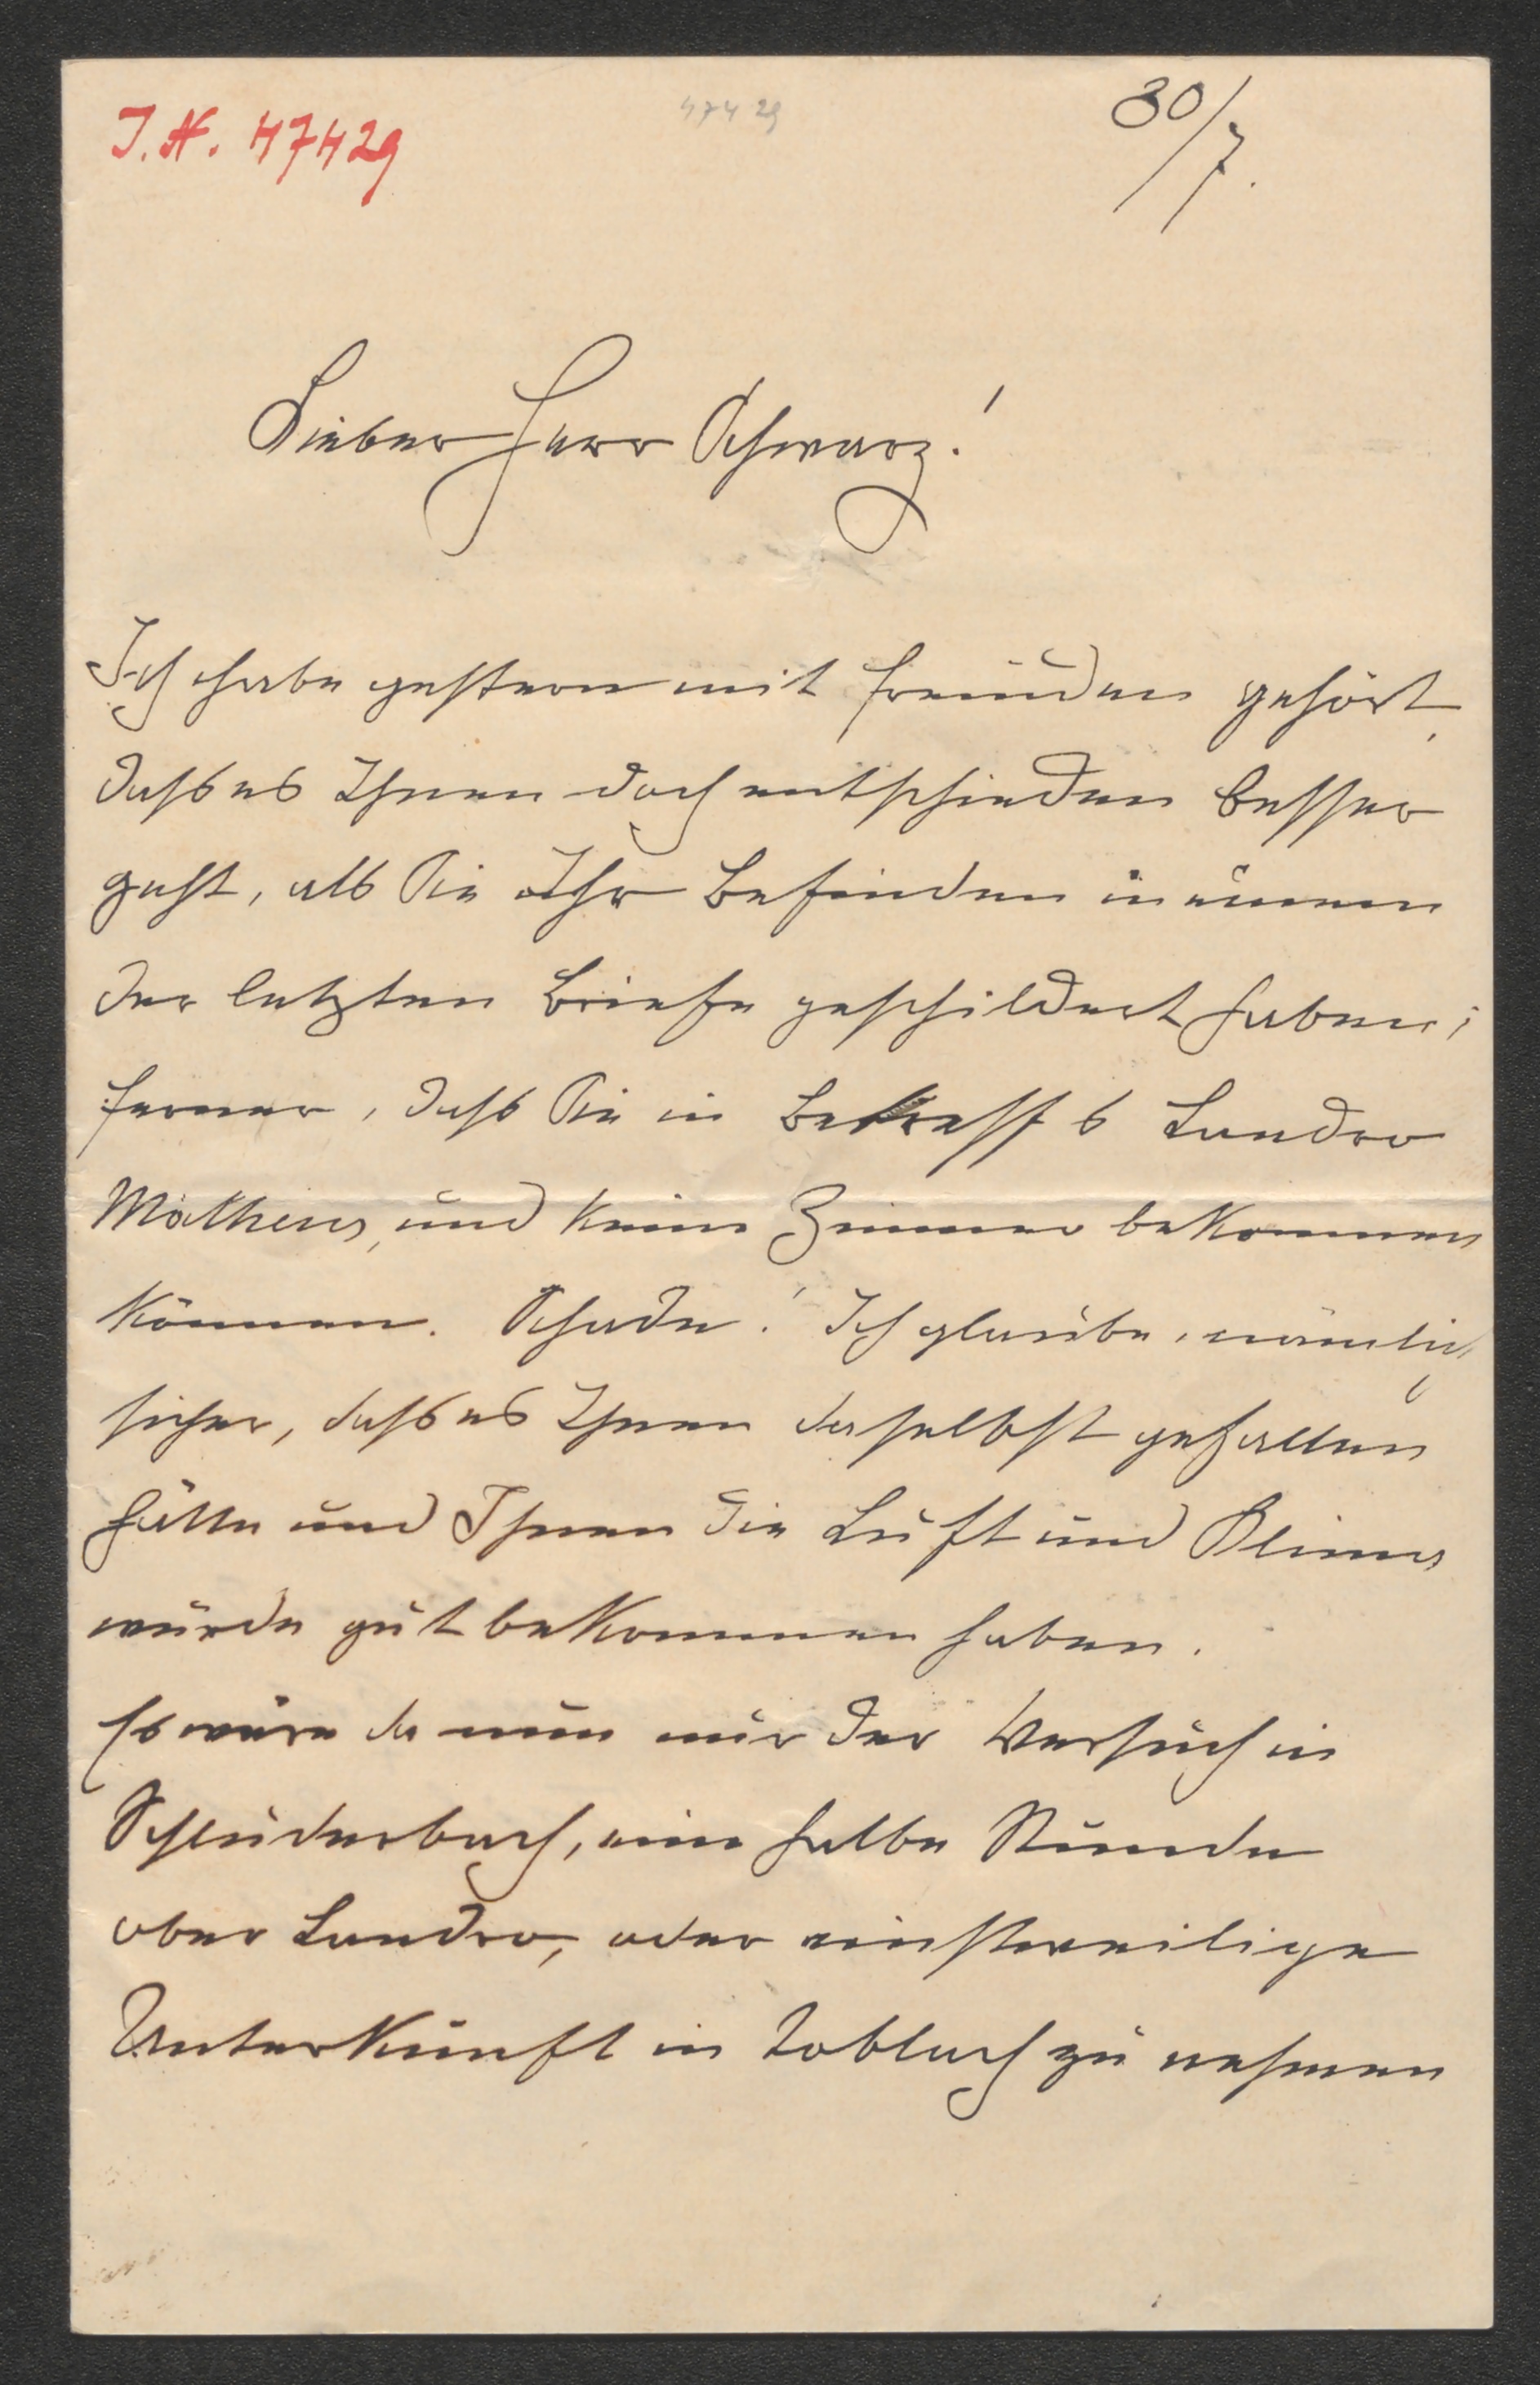 J. N. 47429
47429
30/7.
Lieber Herr Schwarz!
Ich habe gestern mit Freuden gehört,
daß es Ihnen doch entschieden besser
geht, als Sie Ihr Befinden in einem
der letzten Briefe geschildert haben;
ferner, daß Sie in Betreff's Landro
und keine Zimmer bekommen
können. Schade! Ich glaube, nämlich
sicher, daß es Ihnen daselbst gefallen
hätte und Ihnen die Luft und Klima
würde gut bekommen haben.
Es wäre da nun nur der Versuch in
Schluderbach, eine halbe Stunde
ober Landro, oder einstweilige
Unterkunft in Toblach zu nehmen